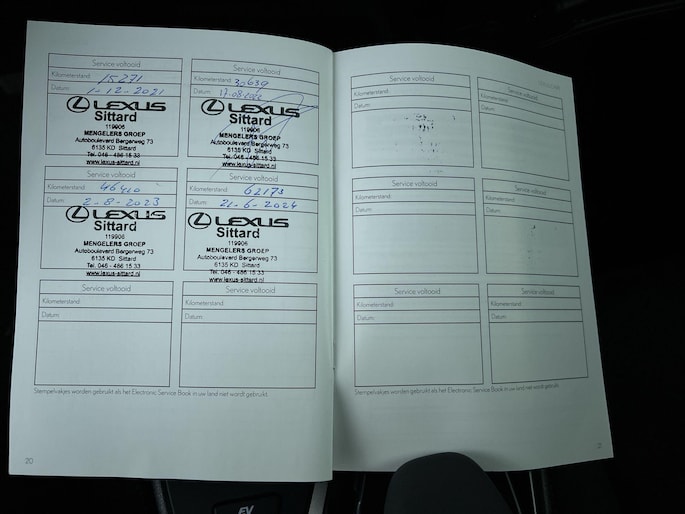 Service voltooid
Kilometerstand: 15271
Datum: 1-12-2021
LEXUS
Sittard
119906
MENGELERS GROEP
Autoboulevard Bergerweg 73
6135 KD Sittard
Tel. 046 - 486 15 33
www.lexus-sittard.nl
Service voltooid
Kilometerstand: 30639
Datum: 17-08-2022
LEXUS
Sittard
119906
MENGELERS GROEP
Autoboulevard Bergerweg 73
6135 KD Sittard
Tel. 046 - 486 15 33
www.lexus-sittard.nl
Service voltooid
Kilometerstand: 46410
Datum: 2-8-2023
LEXUS
Sittard
119906
MENGELERS GROEP
Autoboulevard Bergerweg 73
6135 KD Sittard
Tel. 046 - 486 15 33
www.lexus-sittard.nl
Service voltooid
Kilometerstand: 62173
Datum: 21-6-2024
LEXUS
Sittard
119906
MENGELERS GROEP
Autoboulevard Bergerweg 73
6135 KD Sittard
Tel. 046 - 486 15 33
www.lexus-sittard.nl
Service voltooid
Kilometerstand:
Datum:
Service voltooid
Kilometerstand:
Datum:
Stempelvakjes worden gebruikt als het Electronic Service Book in uw land niet wordt gebruikt.
20
Service voltooid
Kilometerstand:
Datum:
Service voltooid
Kilometerstand:
Datum:
Service voltooid
Kilometerstand:
Datum:
Service voltooid
Kilometerstand:
Datum:
Service voltooid
Kilometerstand:
Datum:
Service voltooid
Kilometerstand:
Datum:
Stempelvakjes worden gebruikt als het Electronic Service Book in uw land niet wordt gebruikt.
21
EV